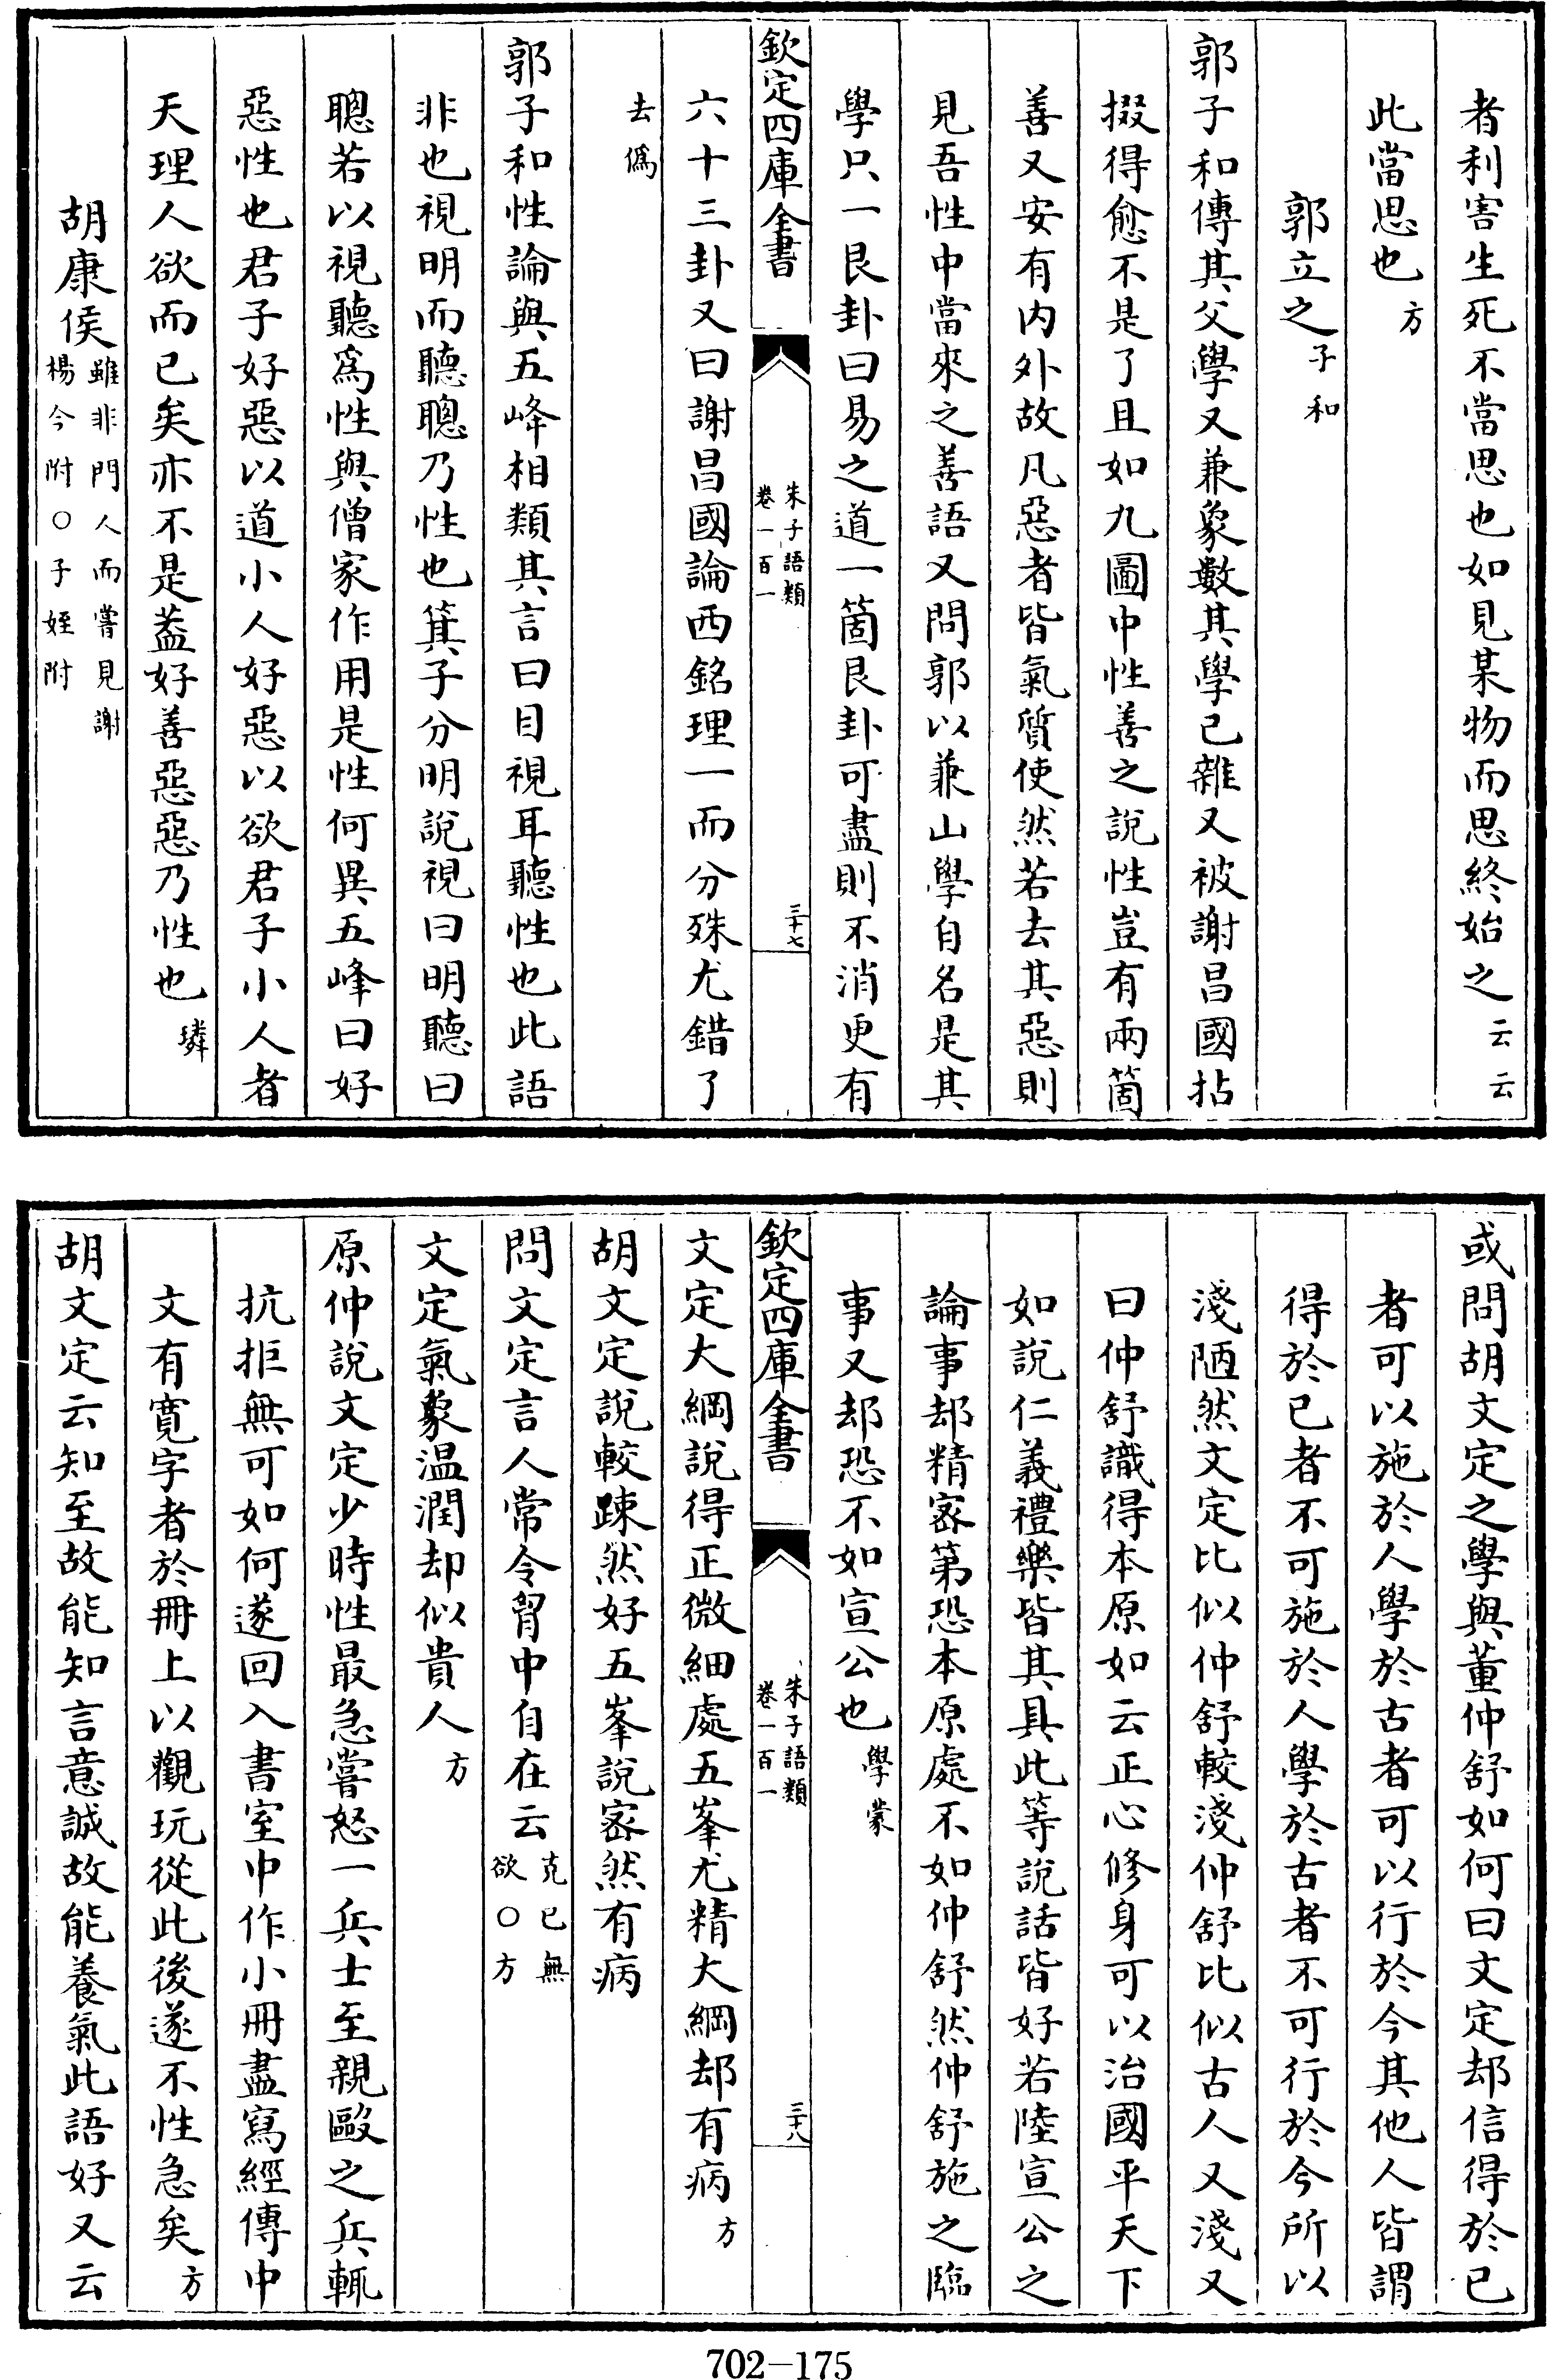 者利害生死不當思也如見某物而思終始之云云
此當思也方
郭立之子和
郭子和傳其父學又兼象數其學已雜又被謝昌國拈
掇得愈不是了且如九圖中性善之說性豈有兩箇
善又安有内外故凡惡者皆氣質使然若去其惡則
見吾性中當來之善語又問郭以兼山學自名是其
學只一艮卦曰易之道一箇艮卦可盡則不消更有
欽定四庫全書
朱子語類
卷一百一
三十七
六十三卦又曰謝昌國論西銘理一而分殊尤錯了
去僞
郭子和性論與五峰相類其言曰目視耳聽性也此語
非也視明而聽聰乃性也箕子分明說視曰明聽曰
聰若以視聽爲性與僧家作用是性何異五峰曰好
惡性也君子好惡以道小人好惡以欲君子小人者
天理人欲而已矣亦不是葢好善惡惡乃性也璘
胡康侯雖非門人而嘗見謝
楊今附〇子姪附
或問胡文定之學與董仲舒如何曰文定却信得於已
者可以施於人學於古者可以行於今其他人皆謂
得於已者不可施於人學於古者不可行於今所以
淺陋然文定比似仲舒較淺仲舒比似古人又淺又
曰仲舒識得本原如云正心修身可以治國平天下
如說仁義禮樂皆其具此等說話皆好若陸宣公之
論事却精宻第恐本原處不如仲舒然仲舒施之臨
事又却恐不如宣公也學蒙
欽定四庫全書
朱子語類
卷一百一
三十八
文定大綱說得正微細處五峯尤精大綱却有病方
胡文定說較踈然好五峯說宻然有病
問文定言人常令胷中自在云克已無
欲〇方
文定氣象温潤却似貴人方
原仲說文定少時性最急嘗怒一兵士至親毆之兵輒
抗拒無可如何遂回入書室中作小冊盡寫經傳中
文有寛字者於冊上以觀玩從此後遂不性急矣方
胡文定云知至故能知言意誠故能養氣此語好又云
702-175